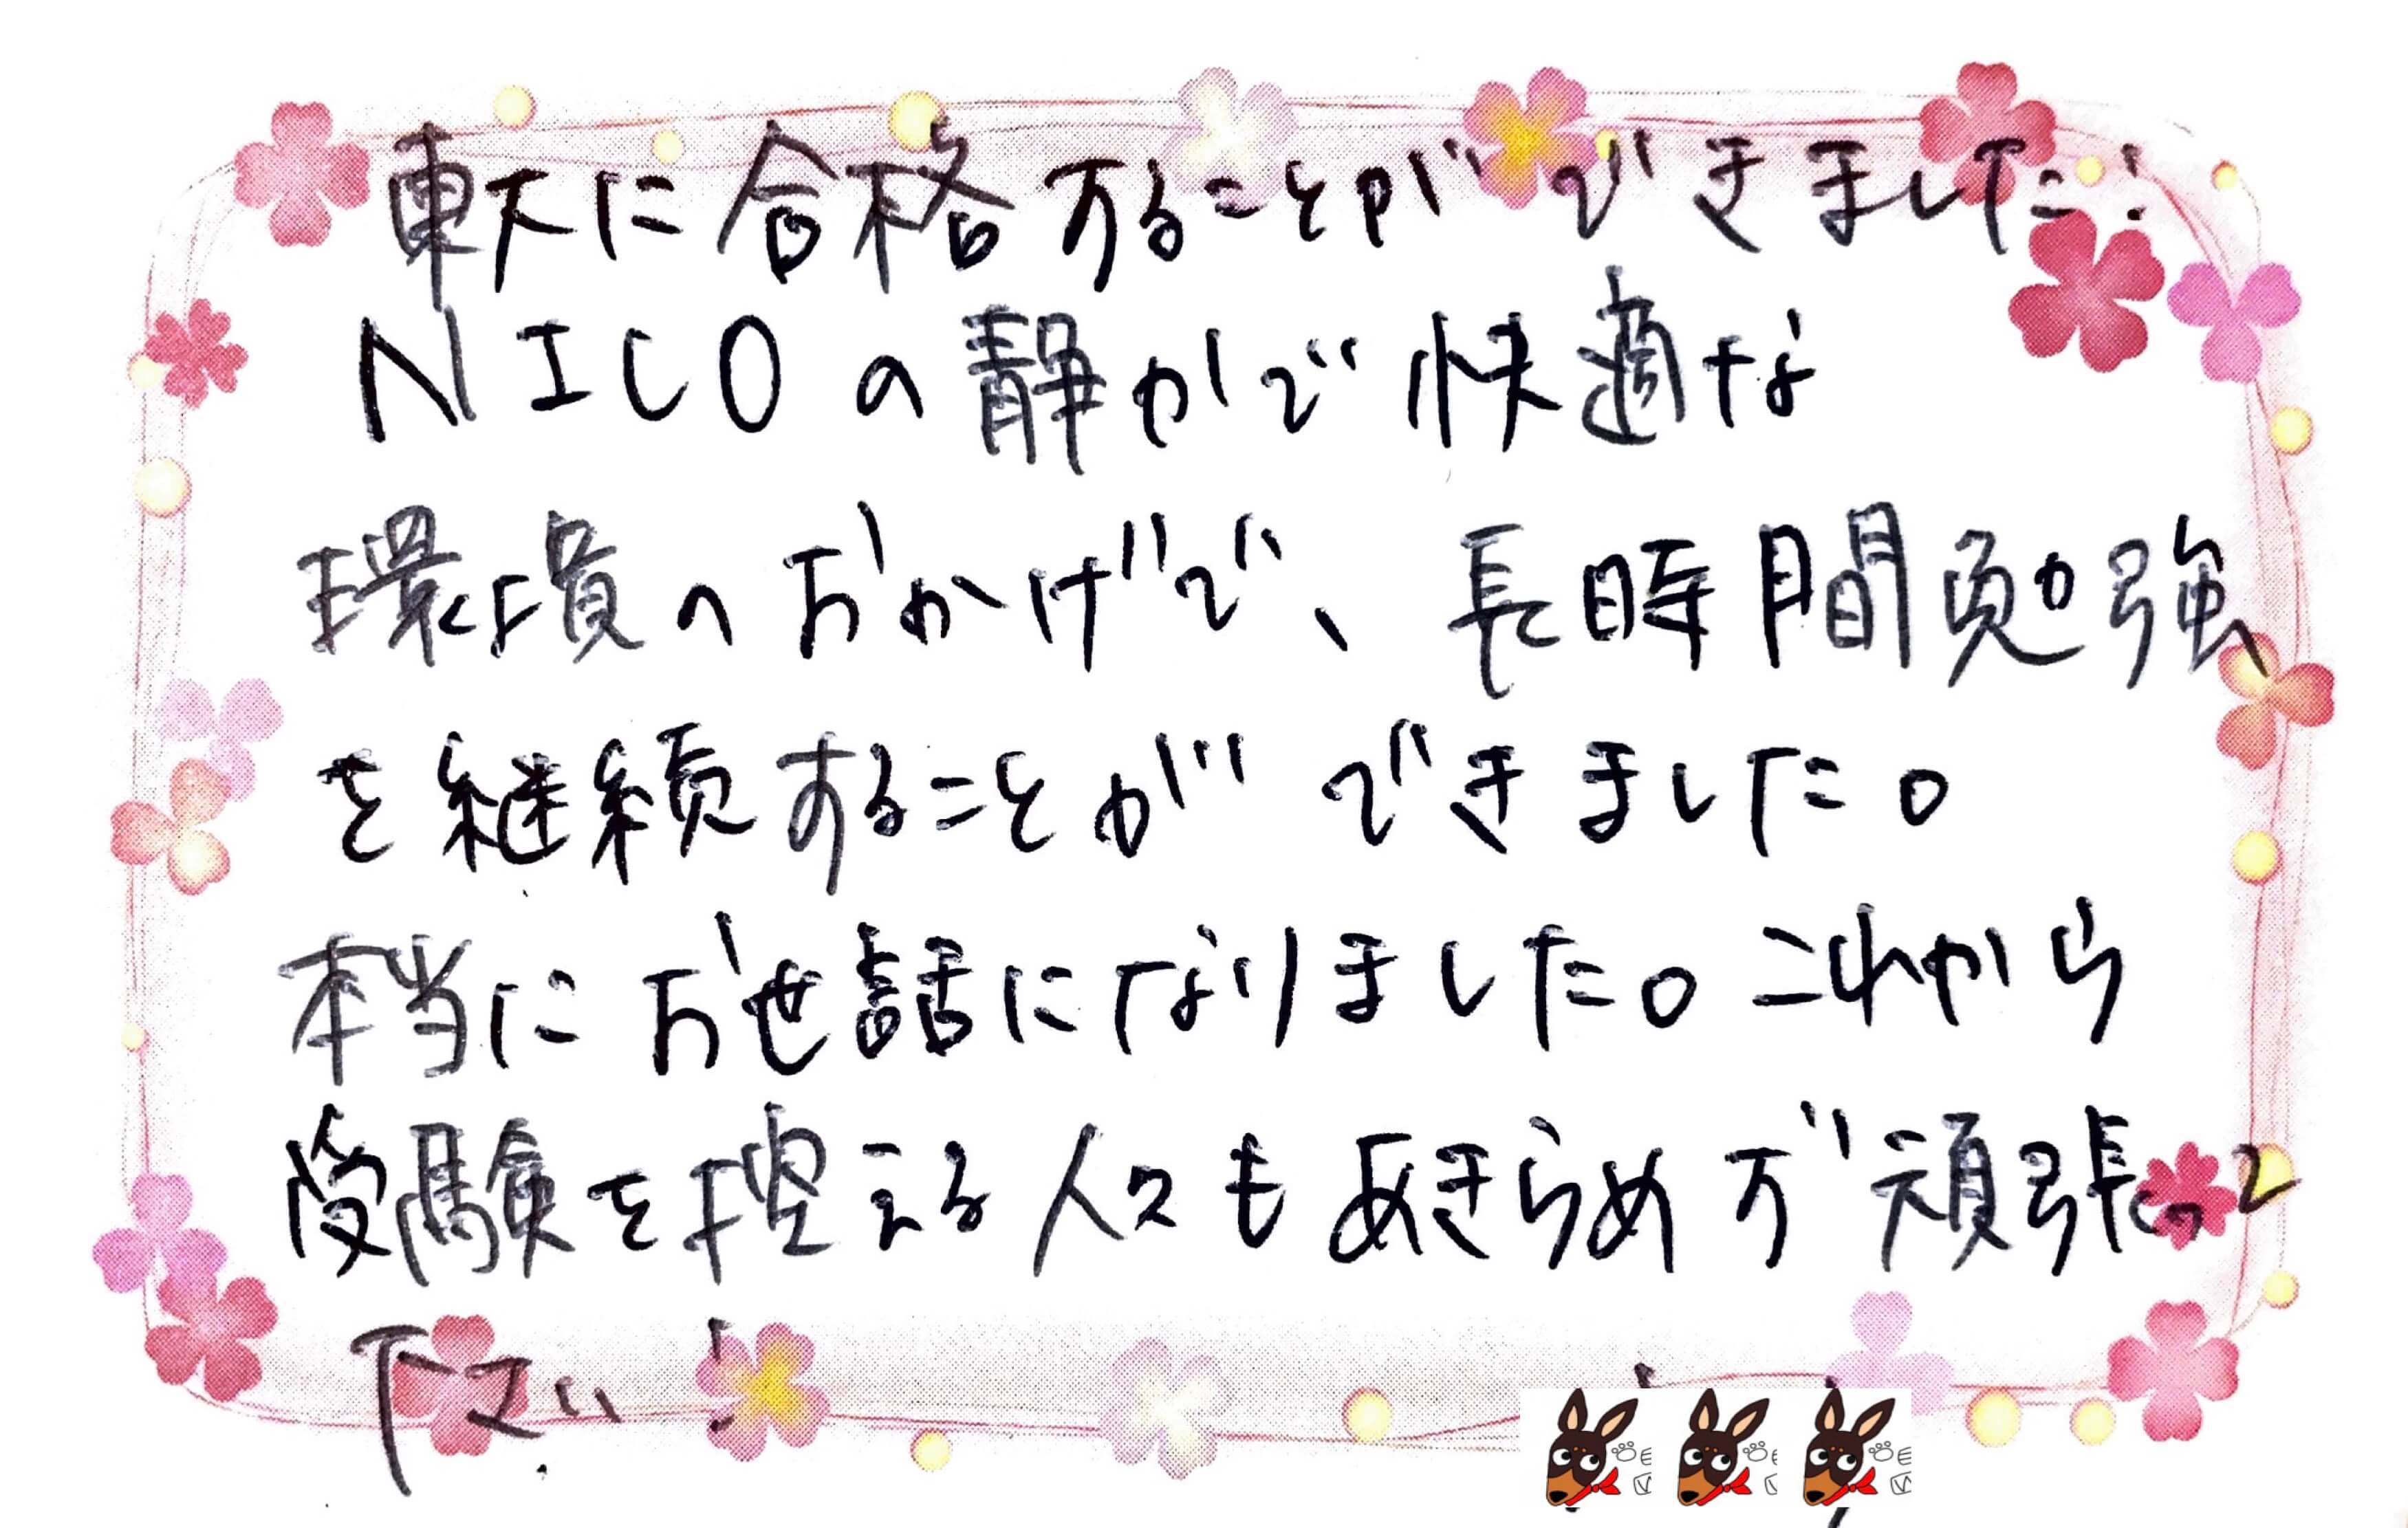 東大に合格することができました!
NICOの静かで快適な
環境のおかげで、長時間勉強
を継続することができました。
本当にお世話になりました。これから
受験を控える人々もあきらめず頑張って
下さい!